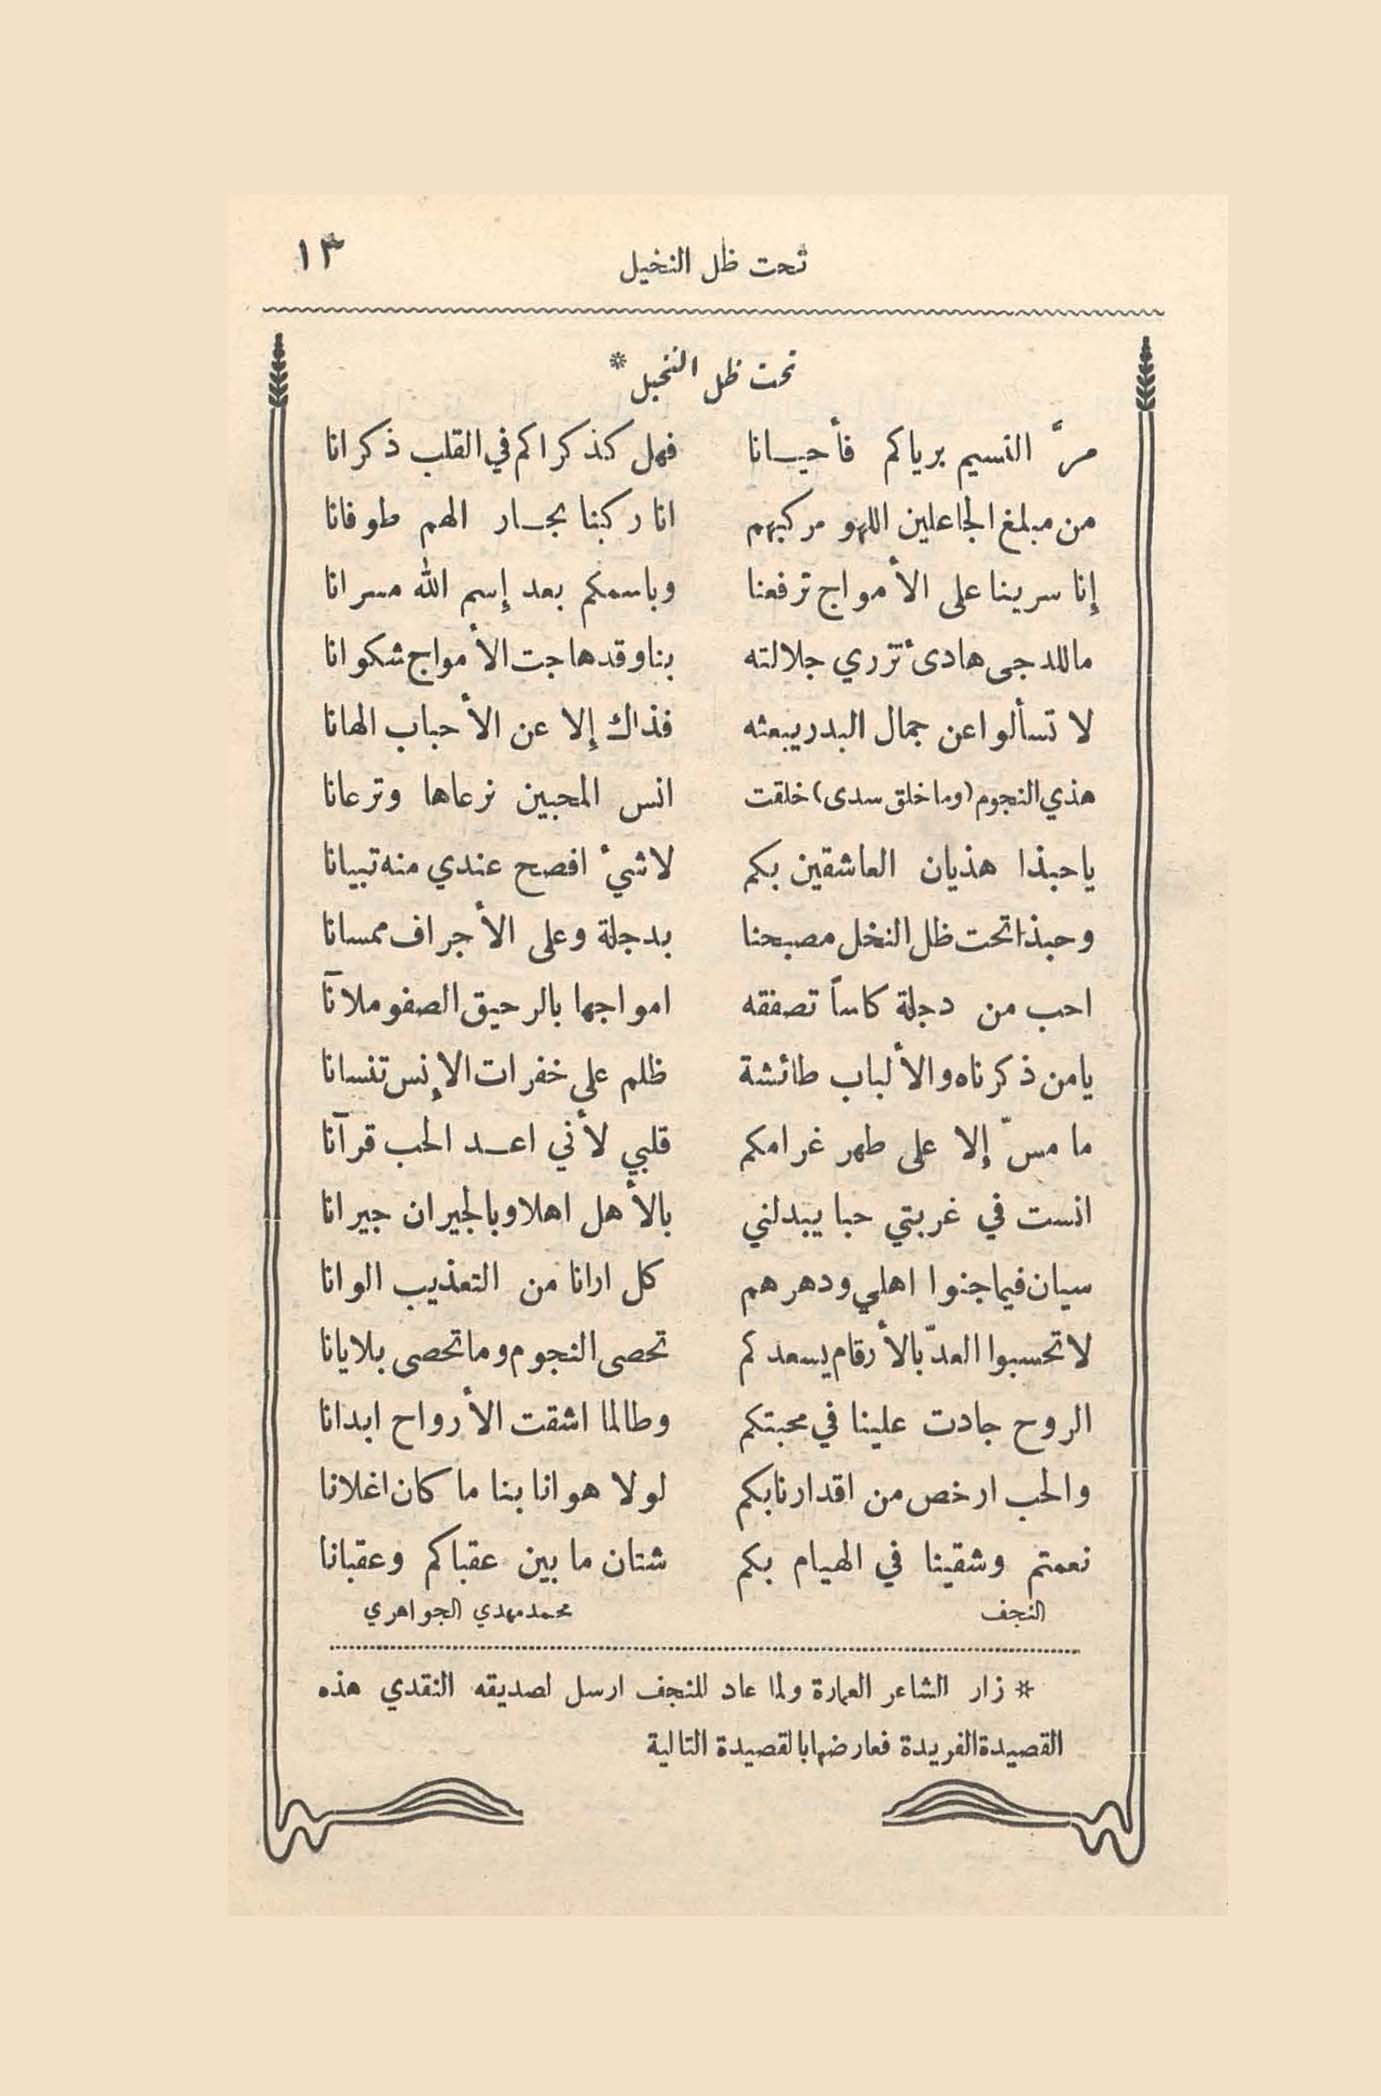 تحت ظل النخيل ١٣
تحت ظل النخيل *
مرَّ النسيم برياكم فأحيانا فهل كذكراكم في القلب ذكرانا
من مبلغ الجاعلين اللهو مركبهم انا ركبنا بحار الهم طوفانا
إنا سرينا على الأمواج ترفعنا وباسمكم بعد إسم الله مسرانا
ماللدجى هادئ تزري جلالته بنا وقد هاجت الأمواج شكوانا
لا تسألوا عن جمال البدر يبعثه فذاك إلا عن الأحباب الهانا
هذي النجوم (وما خلق سدى) خلقت انس المحبين نرعاها وترعانا
ياحبذا هذيان العاشقين بكم لاشيء افصح عندي منه تبيانا
وحبذا تحت ظل النخل مصبحنا بدجلة وعلى الأجراف ممسانا
احب من دجلة كاساً تصفقه امواجها بالرحيق الصفو ملآنا
يامن ذكرناه والألباب طائشة ظلم على خفرات الإنس تنسانا
ما مسّ إلا على طهر غرامكم قلبي لأني اعد الحب قرآنا
انست في غربتي حبا يبدلني بالأهل اهلا وبالجيران جيرانا
سيان فيما جنوا اهلي ودهرهم كل ارانا من التعذيب الوانا
لا تحسبوا العدّ بالأرقام يسعدكم تحصى النجوم وما تحصى بلايانا
الروح جادت علينا في محبتكم وطالما اشقت الأرواح ابدانا
والحب ارخص من اقدارنا بكم لولا هوانا بنا ما كان اغلانا
نعمتم وشقينا في الهيام بكم شتان ما بين عقباكم وعقبانا
النجف محمد مهدي الجواهري
* زار الشاعر العمارة ولما عاد للنجف ارسل لصديقه النقدي هذه
القصيدة الفريدة فعارضها بالقصيدة التالية